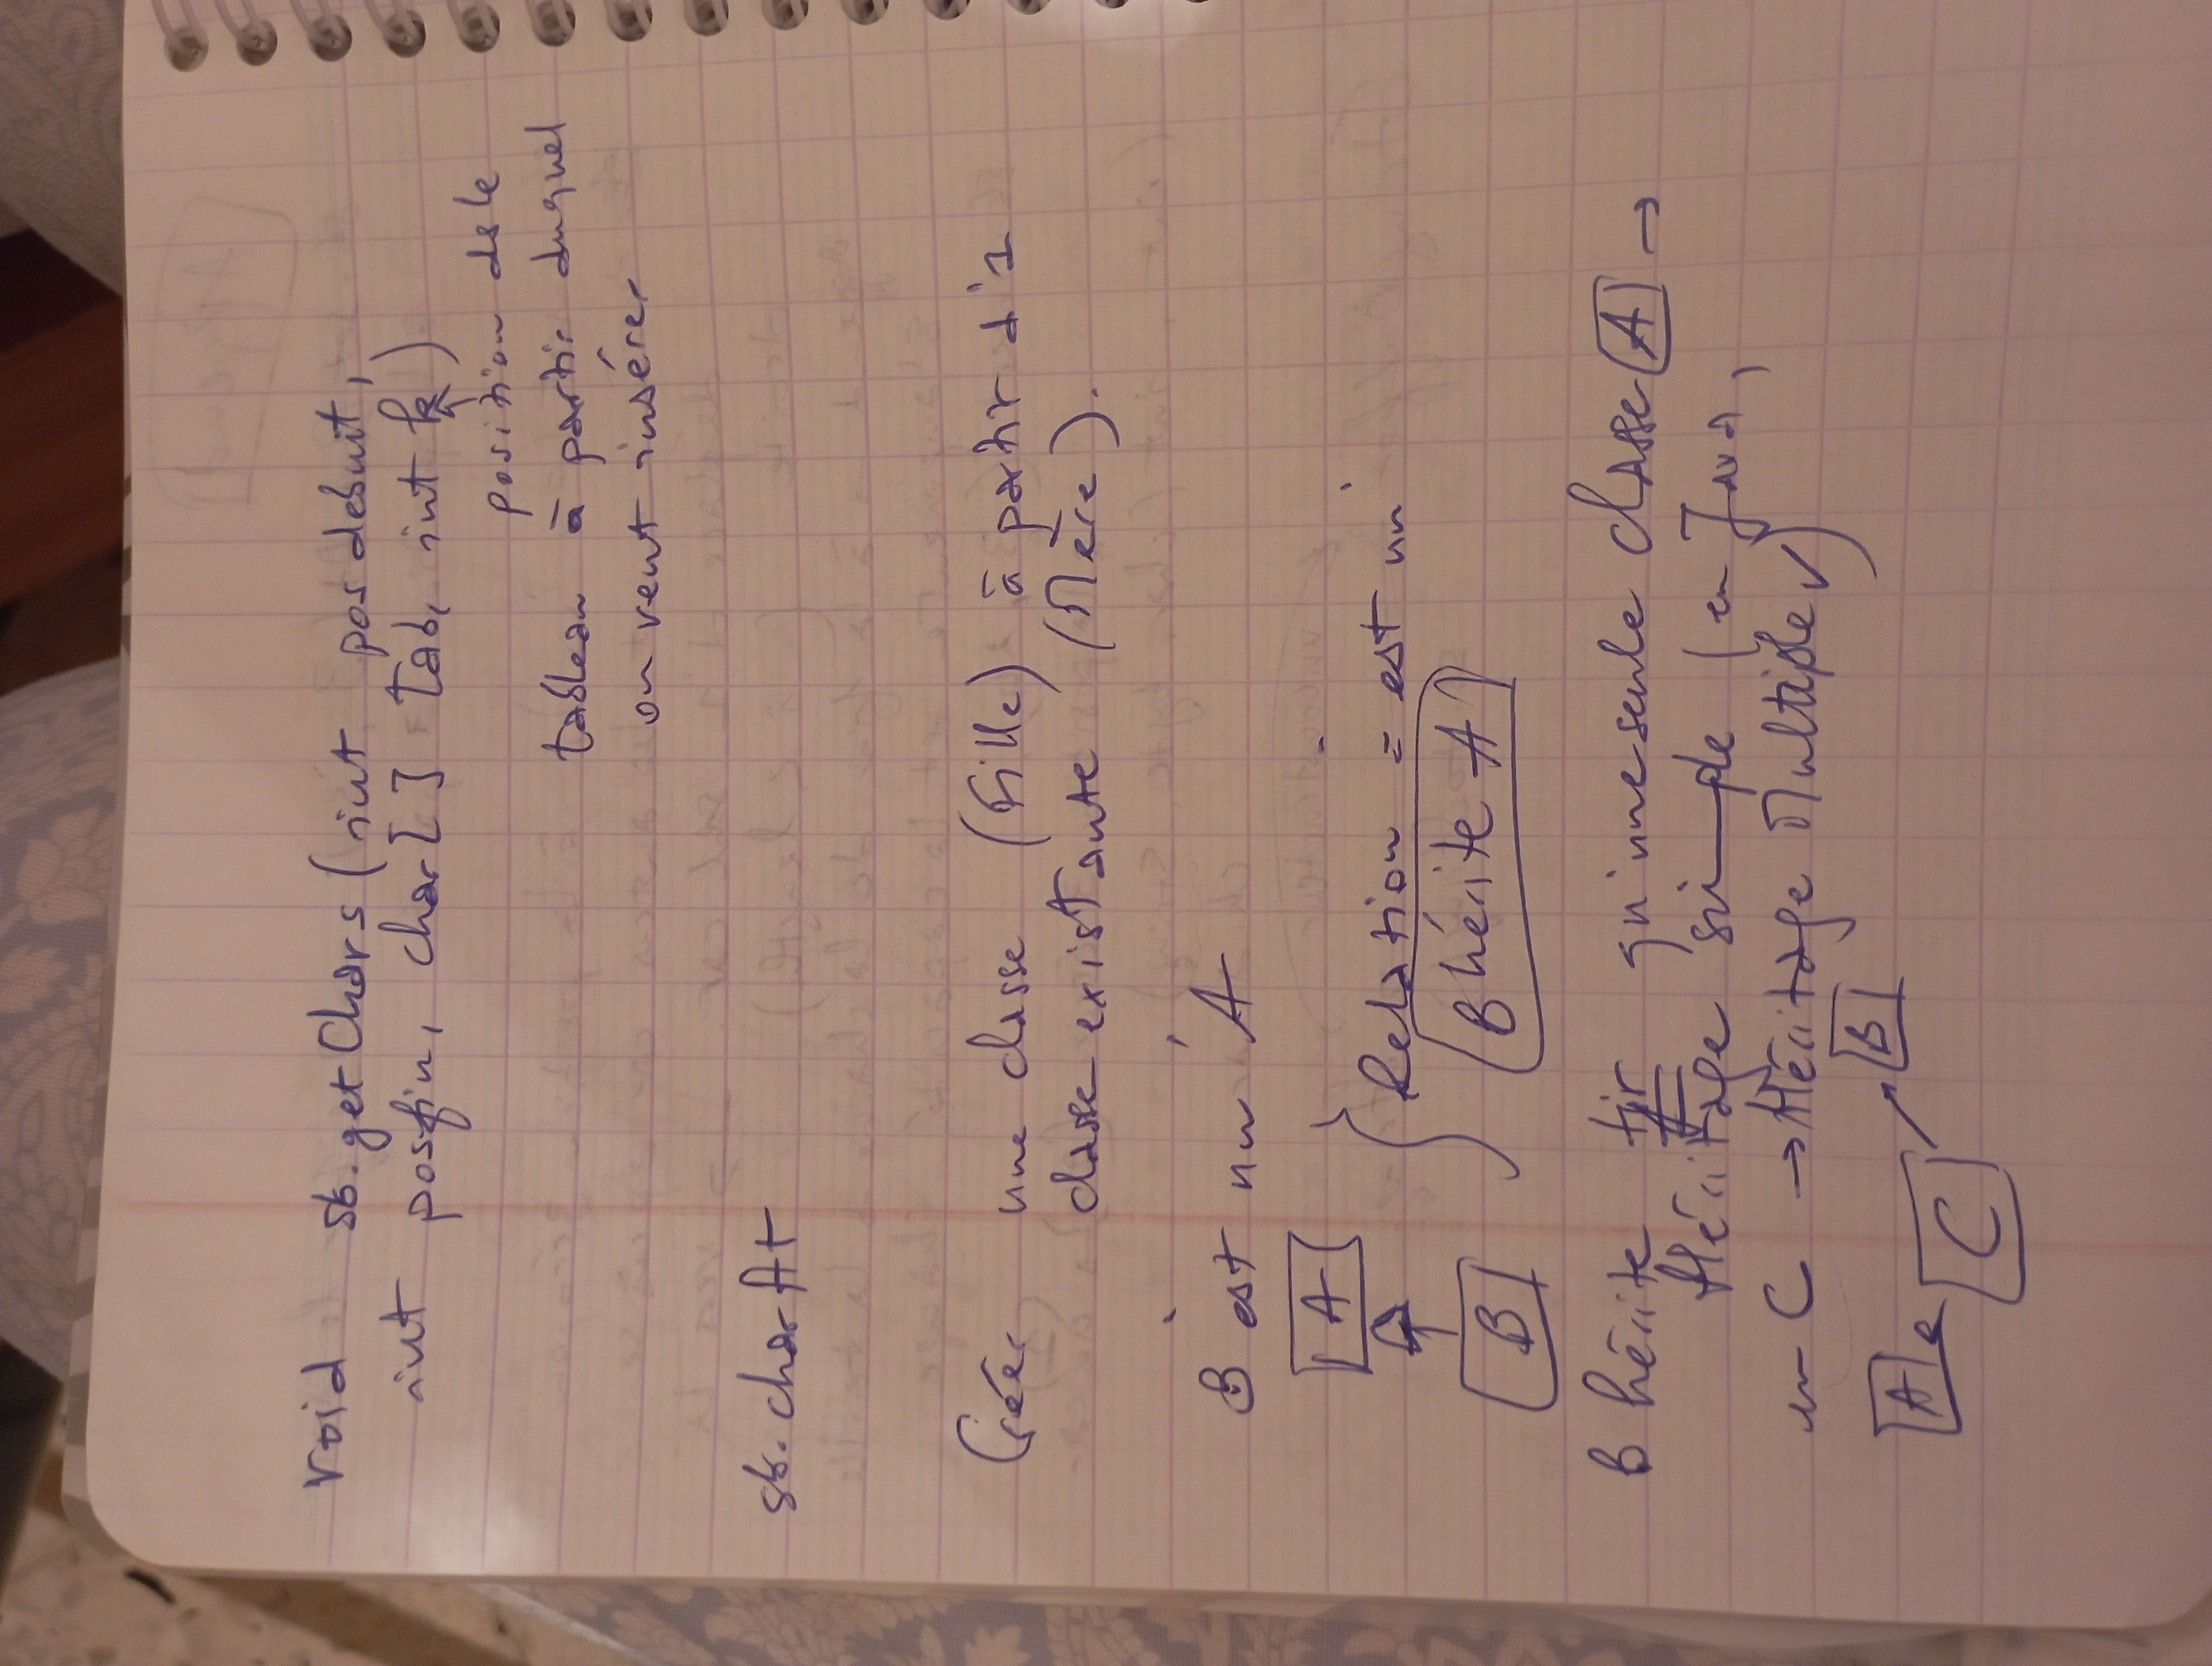 void sb.getChars(int posdebut,
int posfin, char[] tab, int k)
position ds le
tableau à partir duquel
on veut insérer
sb.charAt
Créer une classe (Fille) à partir d'1
classe existante (Mère).
B est un A
A
Relation = est un
B hérite A
B
B hérite tjr qu'une seule classe A →
Héritage simple (en Java,
en C → Héritage Multiple ✓)
B
A
C